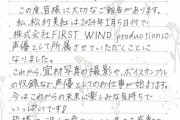 この度、皆様に大切なご報告があります。
私、松村美和は2024年1月5日付で
株式会社FIRST WIND productionに
声優として所属させていただくことに
なりました。
これから、宣材写真の撮影や、ボイスサンプル
の収録など、声優としてのお仕事が始まります。
今はこれからの未来に楽しみな気持ちで
いっぱいです!